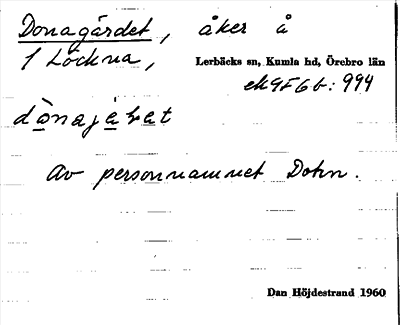 Donagärdet, åker å
1 Lockna, Lerbäcks sn, Kumla hd, Örebro län
ek 9F6b: 994
Av personnamnet Dohn.
Dan Höjdestrand 1960